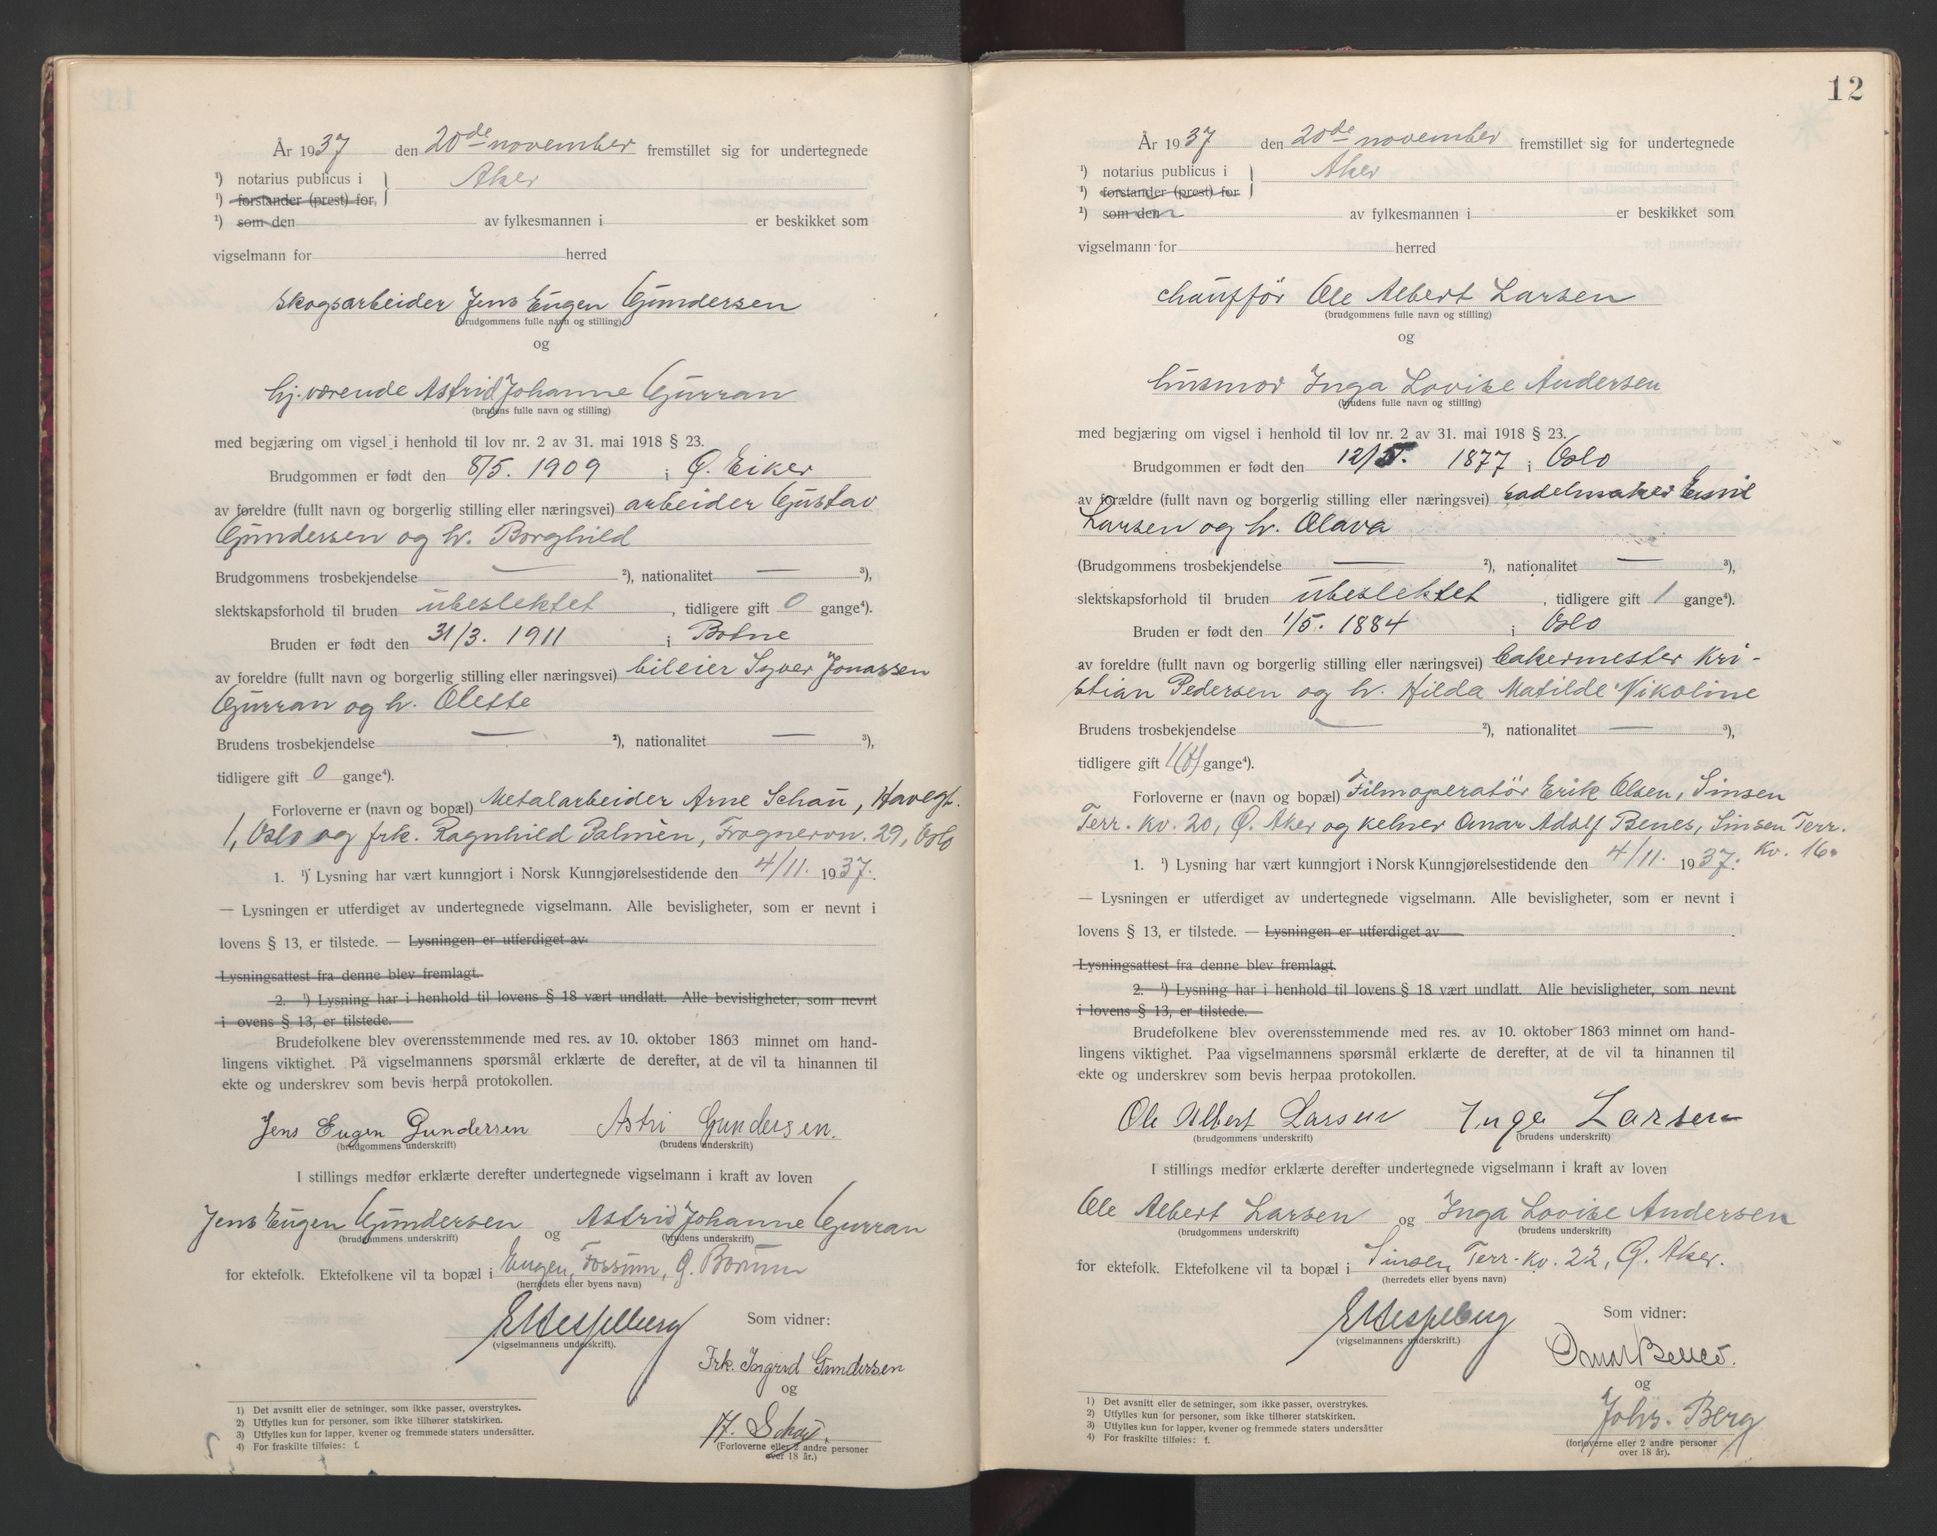 År 1937 den 20de november fremstillet sig for undertegnede
¹) notarius publicus i } Aker
¹) forstander (prest) for
¹) som den av fylkesmannen i er beskikket som
vigselmann for herred
Skogsarbeider Jens Eugen Gundersen
(brudgommens fulle navn og stilling)
og
hj.værende Astrid Johanne Gurran
(brudens fulle navn og stilling)
med begjæring om vigsel i henhold til lov nr. 2 av 31. mai 1918 § 23.
Brudgommen er født den 8/5. 1909 i Ø. Eiker
av foreldre (fullt navn og borgerlig stilling eller næringsvei) arbeider Gustav
Gundersen og h. Borghild
Brudgommens trosbekjendelse — ²), nationalitet — ³),
slektskapsforhold til bruden ubeslektet, tidligere gift 0 gange⁴).
Bruden er født den 31/3. 1911 i Botne
av foreldre (fullt navn og borgerlig stilling eller næringsvei) bileier Syver Jonassen
Gurran og h. Olette
Brudens trosbekjendelse — ²), nationalitet — ³),
tidligere gift 0 gange⁴).
Forloverne er (navn og bopæl) Metalarbeider Arne Schau, Havegt.
1, Oslo og frk. Ragnhild Palmèn, Frognervn. 29, Oslo
1. ¹) Lysning har vært kunngjort i Norsk Kunngjørelsestidende den 4/11. 1937.
— Lysningen er utferdiget av undertegnede vigselmann. Alle bevisligheter, som er nevnt i
lovens § 13, er tilstede. — Lysningen er utferdiget av
Lysningsattest fra denne blev fremlagt.
2. ¹) Lysning har i henhold til lovens § 18 vært undlatt. Alle bevisligheter, som nevnt
i ovens § 13, er tilstede.
Brudefolkene blev overensstemmende med res. av 10. oktober 1863 minnet om hand-
lingens viktighet. På vigselmannens spørsmål erklærte de derefter, at de vil ta hinannen til
ekte og underskrev som bevis herpå protokollen.
Jens Eugen Gundersen Astri Gundersen.
(brudgommens underskrift) (brudens underskrift)
I stillings medfør erklærte derefter undertegnede vigselmann i kraft av loven
Jens Eugen Gundersen og Astrid Johanne Gurran
(brudgommens underskrift) (brudens underskrift)
for ektefolk. Ektefolkene vil ta bopæl i Eugen, Fossum, Ø. Bærum
(herredets eller byens navn)
(vigselmannens underskrift).
Som vidner:
Frk. Ingrid Gundersen
og
A. Schau.
(Forloverne eller 2 andre personer
over 18 år.)
1) Det avsnitt eller de setninger, som ikke passer, overstrykes.
2) Utfylles kun for personer, som ikke tilhører statskirken.
3) Utfylles kun for lapper, kvener og fremmede staters undersåtter.
4) For fraskilte tilføies: f.
12
År 1937 den 20de november fremstillet sig for undertegnede
¹) notarius publicus i } Aker
¹) forstander (prest) for
¹) som den av fylkesmannen i er beskikket som
vigselmann for herred
chauffør Ole Albert Larsen
(brudgommens fulle navn og stilling)
og
husmor Inga Lovise Andersen
(brudens fulle navn og stilling)
med begjæring om vigsel i henhold til lov nr. 2 av 31. mai 1918 § 23.
Brudgommen er født den 12/5. 1877 i Oslo
av forældre (fullt navn og borgerlig stilling eller næringsvei) sadelmaker Emil
Larsen og h. Olava
(Brudgommens trosbekjendelse — ²), nationalitet — ³),
slektskapsforhold til bruden ubeslektet, tidligere gift 1 gange⁴).
Bruden er født den 1/5. 1884 i Oslo
av foreldre (fullt navn og borgerlig stilling eller næringsvei) bakermester Kri-
stian Pedersen og h. Hilda Matilde Nikoline
Brudens trosbekjendelse — ²), nationalitet — ³),
tidligere gift 1(f) gange⁴).
Forloverne er (navn og bopæl) Filmoperatør Erik Olsen, Sinsen
Terr. Kv. 20, Ø. Aker og kelner Omar Adolf Benes, Sinsen Terr.
Kv. 16.
1. ¹) Lysning har vært kunngjort i Norsk Kunngjørelsestidende den 4/11. 1937.
— Lysningen er utferdiget av undertegnede vigselmann. Alle bevisligheter, som er nevnt i
lovens § 13, er tilstede. — Lysningen er utferdiget av
Lysningsattest fra denne blev fremlagt.
2. ¹) Lysning har i henhold til lovens § 18 vært undlatt. Alle bevisligheter, som nevnt
i lovens § 13, er tilstede.
Brudefolkene blev overensstemmende med res. av 10. oktober 1863 minnet om hand-
lingens viktighet. Paa vigselmannens spørsmål erklærte de derefter, at de vil ta hinannen til
ekte og underskrev som bevis herpaa protokollen.
Ole Albert Larsen Inga Larsen
(brudgommens underskrift) (brudens underskrift)
I stillings medfør erklærte derefter undertegnede vigselmann i kraft av loven
Ole Albert Larsen og Inga Lovise Andersen
(brudgommens underskrift) (brudens underskrift)
for ektefolk. Ektefolkene vil ta bopæl i Sinsen Terr. Kv. 22, Ø. Aker.
(herredets eller byens navn)
(vigselmannens underskrift.)
Som vidner:
Omar Benes.
og
Johs. Berg
(forloverne eller 2 andre personer
over 18 år).
1) Det avsnitt eller de setninger, som ikke passer, overstrykes.
2) Utfylles kun for personer, som ikke tilhører statskirken.
3) Utfylles kun for lapper, kvener og fremmede staters undersåtter
4) For fraskilte tilføies: f.